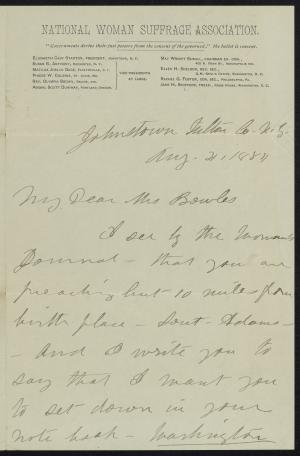 NATIONAL WOMAN SUFFRAGE ASSOCIATION.
"Governments derive their just powers from the consent of the governed." The ballot is consent.
ELIZABETH CADY STANTON, PRESIDENT, JOHNSTOWN, N. Y.
SUSAN B. ANTHONY, ROCHESTER, N. Y.
MATILDA JOSLYN GAGE, FAYETTEVILLE, N. Y.
PHOEBE W. COUZINS, ST. LOUIS, MO.
REV. OLYMPIA BROWN, RACINE, WIS.
ABIGAIL SCOTT DUNIWAY, PORTLAND, OREGON.
VICE-PRESIDENTS
AT LARGE.
MAY WRIGHT SEWALL, CHAIRMAN EX. COM.,
INDIANAPOLIS, IND.
ELLEN H. SHELDON, REC. SEC.,
WASHINGTON, D. C.
RACHEL G. FOSTER, COR. SEC.,
PHILADELPHIA, PA.
JANE H. SPOFFORD, TREAS., RIGGS HOUSE, WASHINGTON, D. C.
Johnstown Fulton Co. N. Y.
Aug. 21, 1884
My Dear Mrs Bowles
I see by the Woman's
Journal - that you are
preaching but 10 miles from
birth place - South - Adams -
- And I write you to
say that I want you
to set down in your
note book - Washington